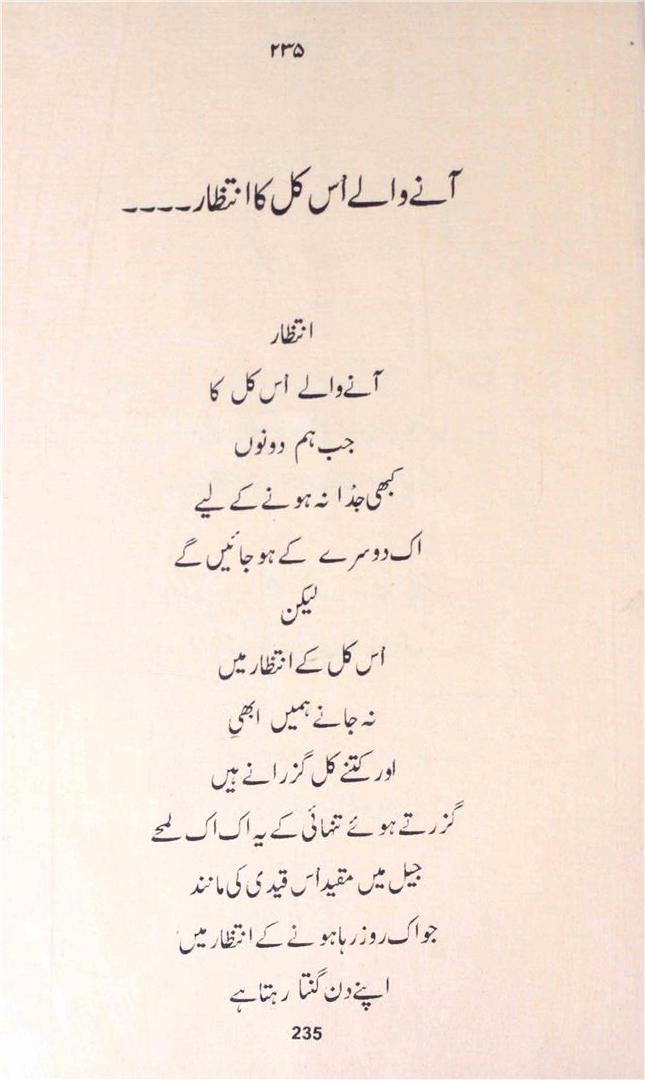 ۲۳۵
آنے والے اُس کل کا انتظار ۔۔۔۔
انتظار
آنے والے اُس کل کا
جب ہم دونوں
کبھی جدُا نہ ہونے کے لیے
اک دوسرے کے ہو جائیں گے
لیکن
اُس کل کے انتظار میں
نہ جانے ہمیں ابھی
اور کتنے کل گزرانے ہیں
گزرتے ہوئے تنہائی کے یہ اک اک لمحے
جیل میں مقید اُس قیدی کی مانند
جو اک روز رہا ہونے کے انتظار میں
اپنے دن گنتا رہتا ہے
235